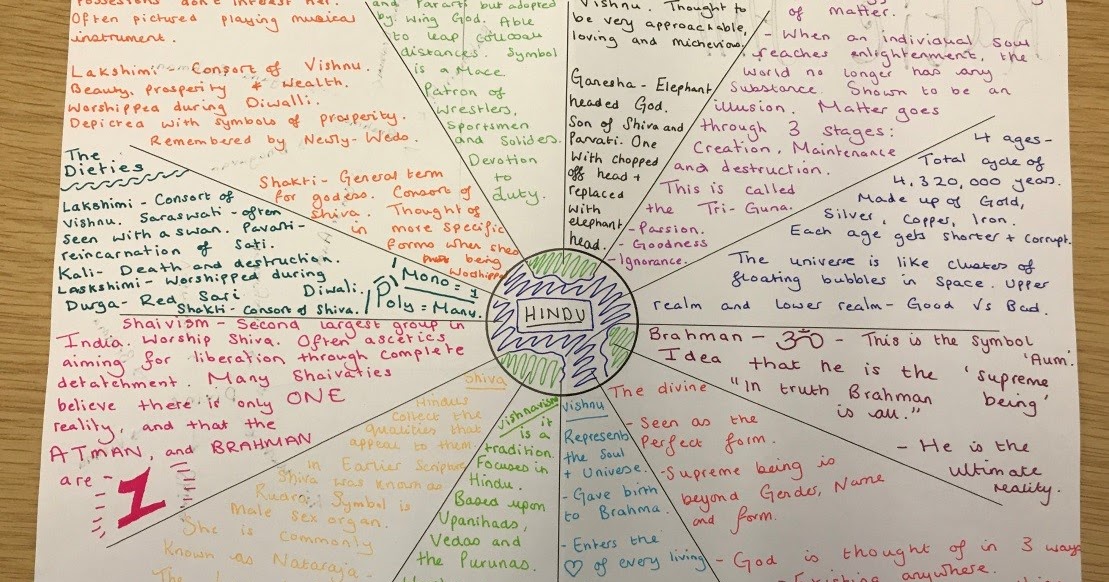 possessions don't interest her.
Often pictured playing musical
instrument.
Lakshimi - Consort of Vishnu.
Beauty, prosperity & Wealth.
Worshipped during Diwalli.
Depicted with symbols of prosperity.
Remembered by Newly-Weds.
and Pararti but adopted
by Wing God. Able
to leap
distances. Symbol
is a Mace.
Patron of
Wrestlers,
Sportsmen
and Soliders.
Devotion
to
duty.
Vishnu. Thought to
be very approachable,
loving and michevious.
Ganesha - Elephant
headed God.
Son of Shiva and
Parvati. One
with chopped
off head +
replaced
with
elephant
head.
of matter.
- When an individual soul
reaches enlightenment, the
world no longer has any
Substance. Shown to be an
illusion. Matter goes
through 3 stages:
Creation, Maintenance
and destruction.
This is called
the Tri-Guna.
- Passion.
- Goodness
- Ignorance.
4 ages-
Total cycle of
4,320,000 years.
Made up of Gold,
Silver, Copper, Iron.
Each age gets shorter + corrupt.
The universe is like cluster of
floating bubbles in Space. Upper
realm and lower realm - Good Vs Bad.
The
Dieties
Lakshimi - Consort of
Vishnu. Saraswati - often
seen with a swan. Pavati -
reincarnation of Sati.
Kali - Death and destruction.
Laskshimi - Worshipped during
Diwali.
Durga - Red Sari
Shakti - Consort of Shiva.
Mono = 1
Poly = Many.
Shakti - General term
for godess. Consort of
Shiva. Thought of
in more specific
forms when shes
being
Worshipped
HINDU
Shaivism - Second largest group in
India. Worship Shiva. Often ascetics
aiming for liberation through complete
detatchment. Many Shaivaties
believe there is only ONE
reality, and that the
ATMAN, and BRAHMAN
are - 1
Shiva
Hindus
collect the
qualities that
appeal to them.
In Earlier Scripture
Shiva was known as
Rudra. Symbol is
Male sex organ.
She is commonly
Known as Nataraja -
Vishnavism
is it
is a
tradition.
Focuses in
Hindu.
Based upon
Upanihads,
Vedas and
the Purunas.
Vishnu
Represents
the Soul
+ Universe.
- Gave birth
to Brahma.
- Enters the
♡ of every living
The divine
- Seen as the
Perfect form.
- Supreme being is
beyond Gender, Name
and form.
- God is thought of in 3 ways
anywhere.
Brahman - ॐ - This is the symbol
'Aum'.
Idea that he is the 'supreme
being'
"In truth Brahman
is all."
- He is the
ultimate
reality.